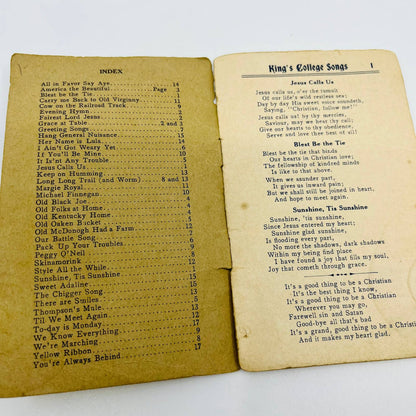 INDEX
All in Favor Say Aye. 14
America the Beautiful. Page 3
Blest Be the Tie. 1
Carry me Back to Old Virginny 11
Cow on the Railroad Track
Evening Hymn
Fairest Lord Jesus
Grace at Table 2 and 3
Greeting Songs
Hang General Nuisance
Her Name is Lula
I Ain't Got Weary Yet
If You'll Be Mine
It Isn't Any Trouble
Jesus Calls Us
Keep on Humming
Long Long Trail (and Worm) 8 and 13
Margie Royal
Michael Finnegan
Old Black Joe
Old Folks at Home
Old Kentucky Home
Old Oaken Bucket
Old McDonogh Had a Farm
Our Battle Song
Pack Up Your Troubles
Peggy O'Neil
Skinamorink
Style All the While
Sunshine, Tis Sunshine
Sweet Adaline
The Chigger Song
There are Smiles
Thompson's Mule
Til We Meet Again
To-day is Monday
We Know Everything
We're Marching
Yellow Ribbon 17
You're Always Behind
King's College Songs 1
Jesus Calls Us
Jesus calls us, o'er the tumult
Of our life's wild restless sea;
Day by day His sweet voice soundeth,
Saying, "Christian, follow me!"
Jesus calls us! by thy mercies,
Saviour, may we hear thy call;
Give our hearts to thy obedience,
Serve and love thee best of all!
Blest Be the Tie
Blest be the tie that binds
Our hearts in Christian love;
The fellowship of kindred minds
Is like to that above.
When we asunder part,
It gives us inward pain;
But we shall still be joined in heart,
And hope to meet again.
Sunshine, Tis Sunshine
Sunshine, 'tis sunshine,
Since Jesus entered my heart;
Sunshine glad sunshine,
Is flooding every part,
No more the shadows, dark shadows
Within my being find place
I have found a joy that fills my soul,
Joy that cometh through grace.
It's a good thing to be a Christian
It's the best thing I know,
It's a good thing to be a Christian
Wherever you may go,
Farewell sin and Satan
Good-bye all that's bad
It's a grand, good thing to be a Christian
And it makes my heart glad.